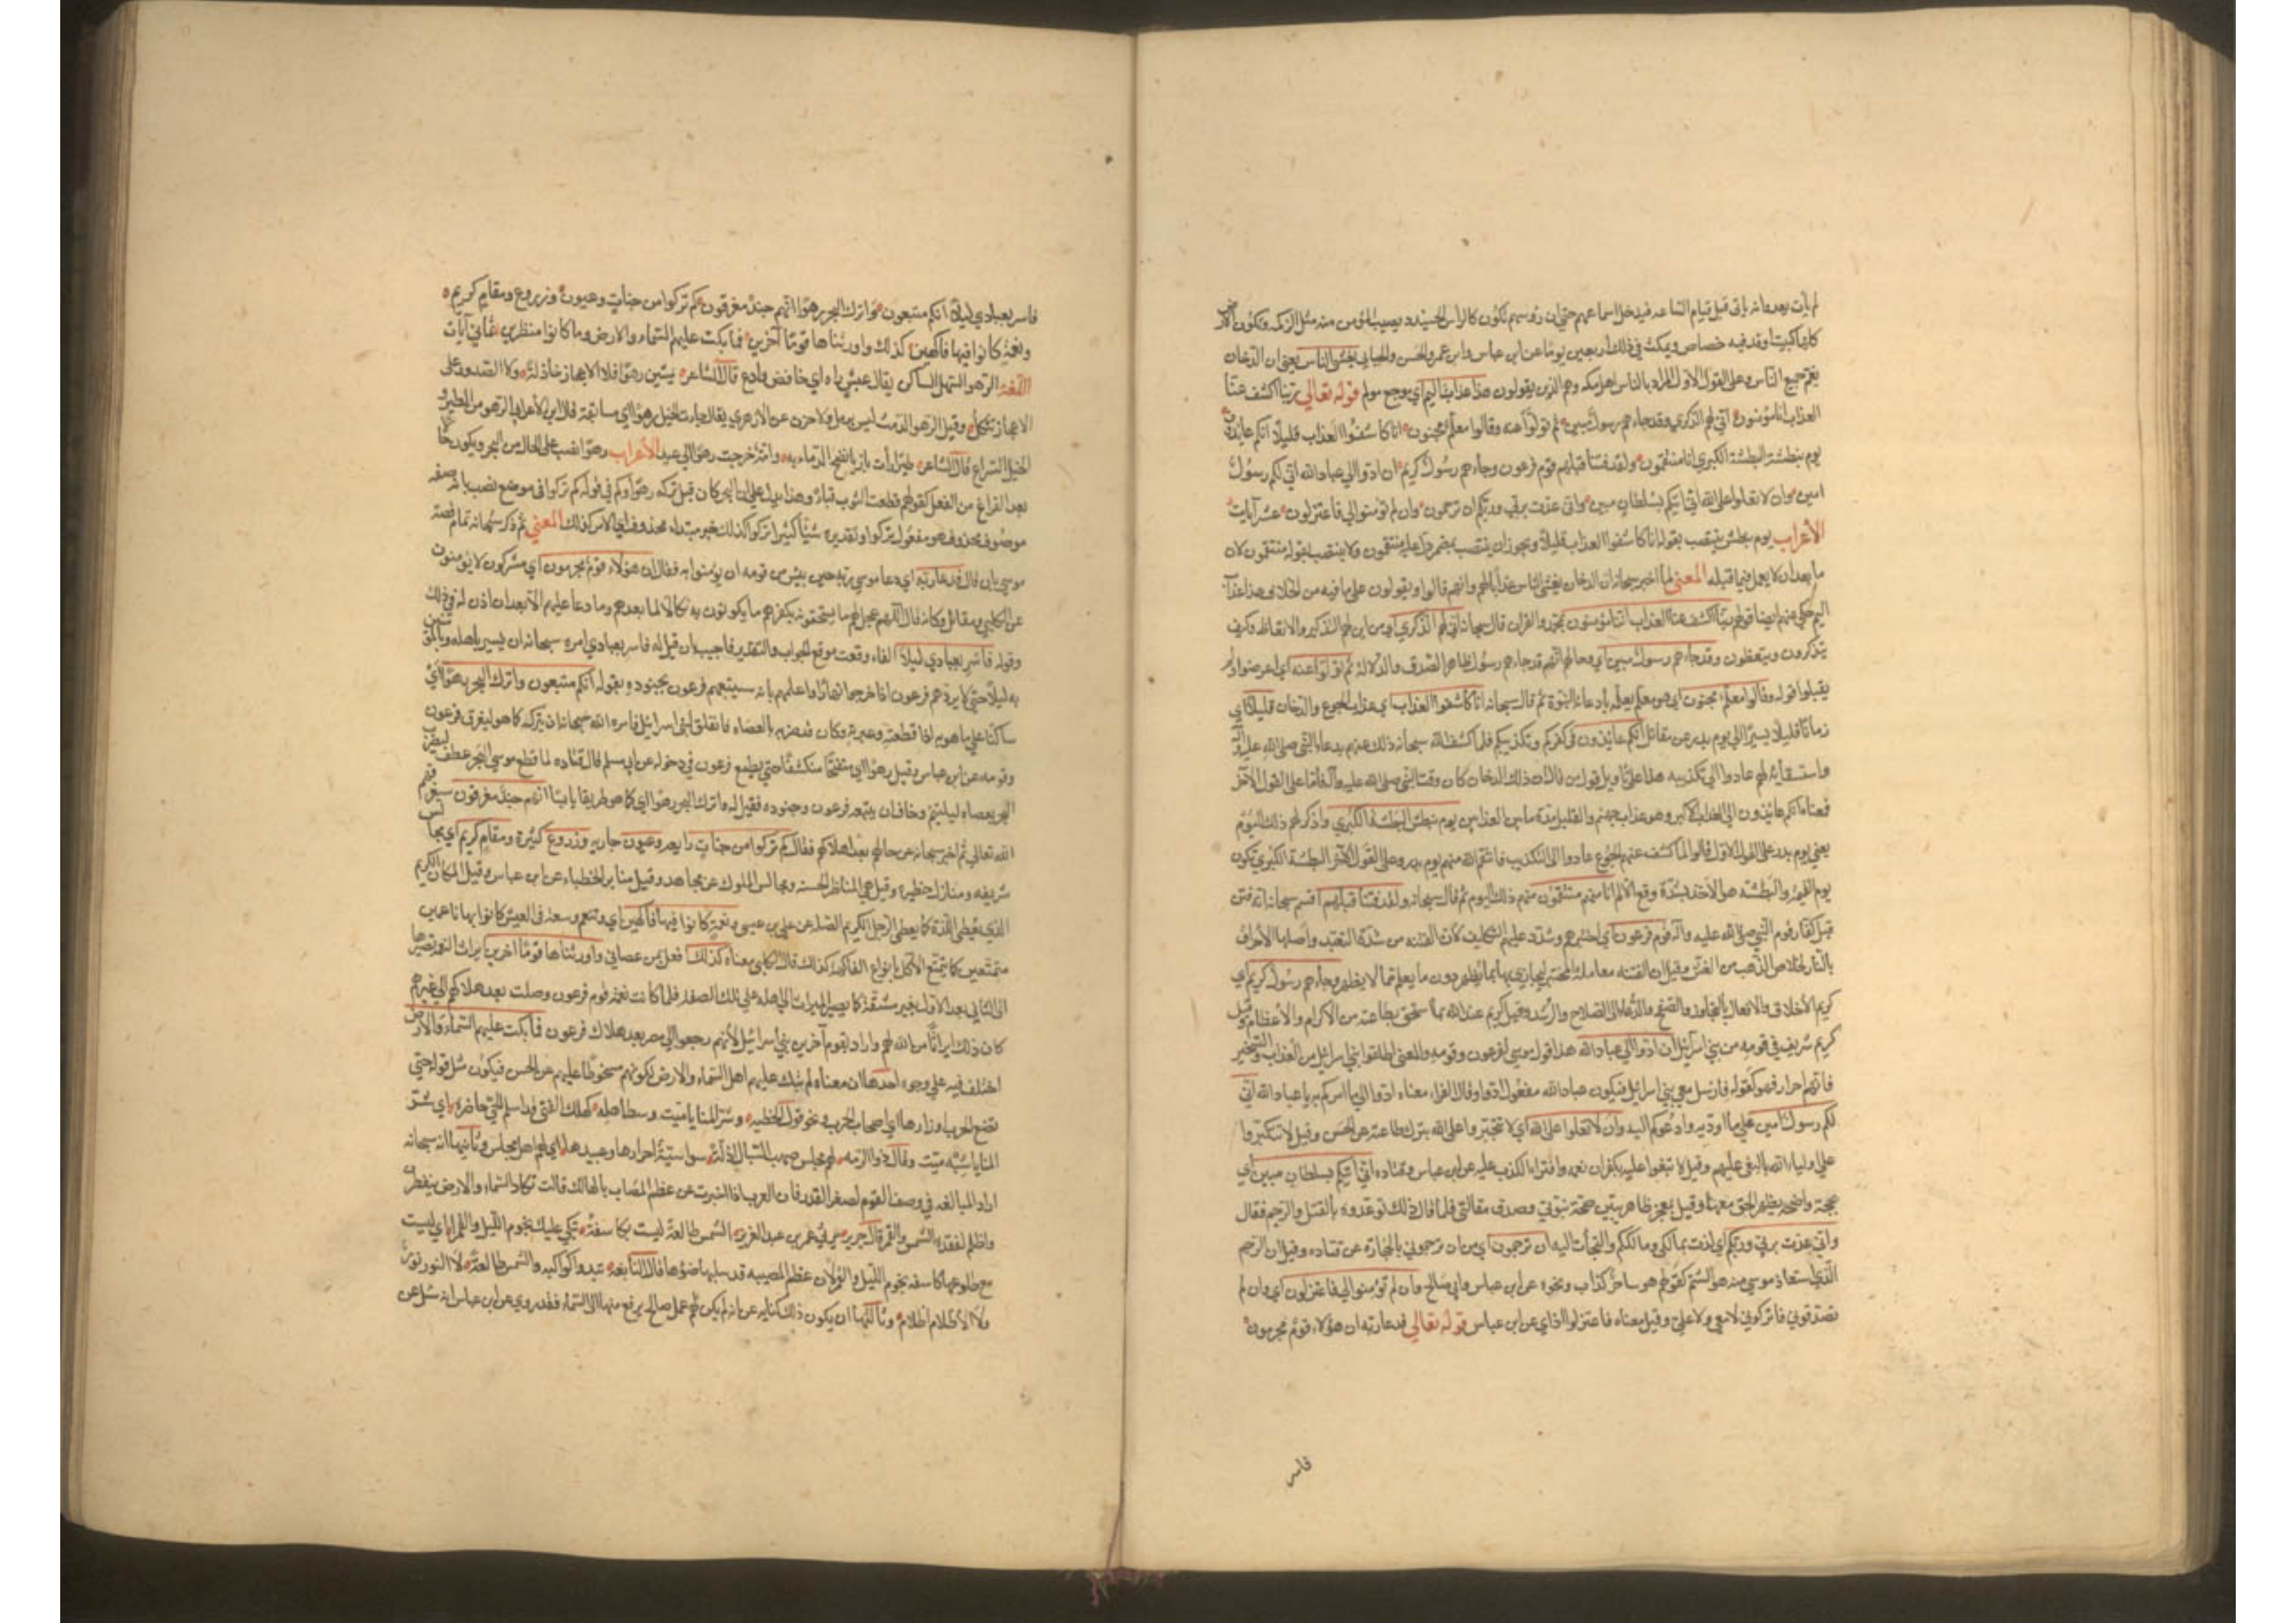 لم يأت بعد وانه يأتى قبل قيام الساعه فيدخل اسماعهم حتى ان رؤسهم تكون كالراس الحنيذ ويصيب المؤمن منه مثل الزكمه وتكون الارض
كلها كبيت اوقد فيه خصاص ويمكث فى ذلك اربعين يوما عن ابن عباس وابن عمر والحسن والجبايى يغشى الناس يعنى ان الدخان
يعم جميع الناس وعلى القول الاول المراد بالناس اهل مكه وهم الذين يقولون هذا عذاب اليم اي موجع مولم قوله تعالي ربنا اكشف عنا
العذاب انا مؤمنون انى لهم الذكري وقد جاءهم رسول مبين ثم تولوا عنه وقالوا معلم مجنون انا كاشفوا العذاب قليلا انكم عايدون
يوم نبطش البطشة الكبري انا منتقمون ولقد فتنا قبلهم قوم فرعون وجاءهم رسول كريم ان ادوا الي عباد الله اني لكم رسول
امين وان لا تعلوا على الله انى آتيكم بسلطان مبين وانى عذت بربي وربكم ان ترجمون وان لم تؤمنوا لي فاعتزلون عشر آيات
الأعراب يوم نبطش ينتصب بقوله انا كاشفوا العذاب قليلا ويجوز ان ينتصب بمضمر دل عليه منتقمون ولا ينتصب بقوله منتقمون لان
ما بعد ان لا يعمل فيما قبله المعنى لما اخبر سبحانه ان الدخان يغشى الناس عذابا لهم وانهم قالوا ويقولون على ما فيه من الخلاف هذا عذاب
اليم حكي عنهم ايضا قولهم ربنا اكشف عنا العذاب انا مؤمنون بمحمد والقران قال سبحانه انى لهم الذكري اي من اين لهم التذكير والاتعاظ وكيف
يتذكرون ويتعظون وقد جاءهم رسول مبين اي وحالهم انهم قد جاءهم رسول ظاهر الصدق والدلالة ثم تولوا عنه اي اعرضوا ولم
يقبلوا قوله وقالوا معلم مجنون اي هو معلم يعلمه بادعاء النبوة ثم قال سبحانه انا كاشفوا العذاب اي عذاب الجوع والدخان قليلا اي
زمانا قليلا يسيرا الي يوم بدر عن مقاتل انكم عايدون فى كفركم وتكذيبكم فلما كشف الله سبحانه ذلك عنهم بدعاء النبى صلى الله عليه وآله
واستسقائه لهم عادوا الي تكذيبه هذا على تاويل من قال ان ذلك الدخان كان وقت النبى صلى الله عليه وآله فاما على القول الآخر
فمعناه انكم عائدون الي العذاب الأكبر وهو عذاب جهنم والقليل مدة ما بين العذابين يوم نبطش البطشة الكبري واذكر لهم ذلك اليوم
يعني يوم بدر على القول الاول قالوا لما كشف عنهم الجوع عادوا الى التكذيب فانتقم الله منهم يوم بدر وعلى القول الآخر البطشة الكبري تكون
يوم القيمة والبطشه هو الاخذ بشدة وقع الالم انا منهم منتقمون منهم ذلك اليوم ثم قال سبحانه ولقد فتنا قبلهم اقسم سبحانه انه فتن
قبل كفار قوم النبي صلى الله عليه وآله قوم فرعون اي اختبرهم وشدد عليهم التكليف لأن الفتنه من شدة التعبد واصلها الأحراق
بالنار لخلاص الذهب من الغش وقيل ان الفتنه معاملة المختبر ليجازي بما يظهر دون ما يعلم مما لا يظهر وجاءهم رسول كريم اي
كريم الأخلاق والافعال بالتجاوز والصفح والدعاء الى الصلاح والرشد وقيل كريم عند الله بما استحق بطاعته من الأكرام والأعظام وقيل
كريم شريف فى قومه من بني اسرائيل ان ادوا الي عباد الله هذا قول موسي لفرعون وقومه والمعنى اطلقوا بني اسرائيل من العذاب والتسخير
فانهم احرار فهو كقوله فارسل معي بني اسرائيل فيكون عباد الله مفعول ادوا وقال الفراء معناه ادوا الي ما آمركم به يا عباد الله انى
لكم رسول امين على ما أؤديه وادعوكم اليه وان لا تعلوا على الله اي لا تتجبروا على الله بترك طاعته عن الحسن وقيل لا تتكبروا
على اولياء الله بالبغي عليهم وقيل لا تبغوا عليه بكفران نعمه وافتراء الكذب عليه عن ابن عباس وقتاده انى آتيكم بسلطان مبين اي
بحجة واضحه يظهر الحق معها وقيل بمعجز ظاهر يبين صحة نبوتي وصدق مقالتي فلما قال ذلك توعدوه بالقتل والرجم فقال
وانى عذت بربي وربكم اي لذت بمالكي ومالككم والتجأت اليه ان ترجمون اي من ان ترجموني بالحجارة عن قتاده وقيل ان الرجم
الذي استعاذ موسي منه هو الشتم كقولهم هو ساحر كذاب ونحوه عن ابن عباس وابي صالح وان لم تؤمنوا لي فاعتزلون اي وان لم
تصدقوني فاتركوني لا معي ولا علي وقيل معناه فاعتزلوا اذاي عن ابن عباس قوله تعالي فدعا ربه ان هؤلاء قوم مجرمون
فاسر
فاسر بعبادي ليلا انكم متبعون واترك البحر رهوا انهم جند مغرقون كم تركوا من جنات وعيون وزروع ومقام كريم
ونعمة كانوا فيها فاكهين كذلك واورثناها قوما آخرين فما بكت عليهم السماء والارض وما كانوا منظرين ثماني آيات
اللغة الرهو السهل الساكن يقال عيش راه اي خافض وادع قال الشاعر يمشين رهوا فلا الاعجاز خاذلة ولا الصدور على
الاعجاز تتكل وقيل الرهو الدمث ليس برمل ولا حزن عن الازهري يقال جاءت الخيل رهوا اي متتابعة قال ابن الأعرابي الرهو من الطير و
الخيل السراع قال الشاعر طيرا رأت بازيا نضح الدماء به وامه خرجت رهوا الي عيد الأعراب رهوا نصب على الحال من البحر ويكون حالا
بعد الفراغ من الفعل كقولهم قطعت الثوب قباء وهذا يدل على ان البحر كان قبل تركه رهوا وكم فى قوله كم تركوا فى موضع نصب بانه صفه
موصوف محذوف هو مفعول تركوا وتقديره شيئا كثيرا تركوا كذلك خبر مبتداء محذوف اي الامر كذلك المعني ثم ذكر سبحانه تمام قصة
موسي بان قال فدعا ربه اي دعا موسي ربه حين يئس من قومه ان يؤمنوا به فقال ان هؤلاء قوم مجرمون اي مشركون لا يؤمنون
عن الكلبي ومقاتل وكانه قال اللهم عجل لهم ما يستحقونه بكفرهم ما يكونون به نكالا لما بعدهم وما دعا عليهم الا بعد ان اذن له فى ذلك
وقوله فاسر بعبادي ليلا الفاء وقعت موقع الجواب والتقدير فاجيب بان قيل له فاسر بعبادي امره سبحانه ان يسير باهله وبالمؤمنين
به ليلا حتى لا يردهم فرعون اذا خرجوا نهارا واعلمهم بانه سيتبعهم فرعون بجنوده بقوله انكم متبعون واترك البحر رهوا اي
ساكنا على ما هو به اذا قطعته وعبرته وكان قد ضربه بالعصاء فانفلق لبني اسرائيل فامره الله سبحانه ان يتركه كما هو ليغرق فرعون
وقومه عن ابن عباس وقيل رهوا اي منفتحا منكشفا حتى يطمع فرعون فى دخوله عن ابي مسلم قال قتاده لما قطع موسي البحر عطف ليضرب
البحر بعصاه ليلتئم وخاف ان يتبعه فرعون وجنوده فقيل له واترك البحر رهوا اي كما هو طريقا يابسا انهم جند مغرقون سيغرقهم
الله تعالي ثم اخبر سبحانه عن حالهم بعد اهلاكهم فقال كم تركوا من جنات رايعه وعيون جاريه وزروع كثيرة ومقام كريم اي مجالس
شريفه ومنازل خطيره وقيل هي المناظر الحسنه ومجالس الملوك عن مجاهد وقيل منابر الخطباء عن ابن عباس وقيل المكان الكريم
الذي يعطى اللذة كما يعطى الرجل الكريم الصلة عن على بن عيسى ونعمة كانوا فيها فاكهين اي وتنعم وسعة فى العيش كانوا بها ناعمين
متمتعين كما يتمتع الآكل بانواع الفاكهه كذلك قال الكلبي معناه كذلك افعل بمن عصاني واورثناها قوما اخرين ايراث النعمه تصييرها
الى الثاني بعد الاول بغير مشقة كما يصير الميراث الي اهله على تلك الصفه فلما كانت نعمة قوم فرعون وصلت بعد هلاكهم الي غيرهم
كان ذلك ايراثا من الله لهم واراد بقوم آخرين بني اسرائيل لأنهم رجعوا الي مصر بعد هلاك فرعون فما بكت عليهم السماء والارض
اختلف فيه على وجوه احدها ان معناه لم تبك عليهم اهل السماء والارض لكونهم مسخوطا عليهم عن الحسن فيكون مثل قوله حتى
تضع الحرب اوزارها اي اصحاب الحرب ونحو قول الحطيه وشر المنايا ميت وسط اهله كهلك الفتى قد اسلم الحي حاضره اي شر
المنايا منيه ميت وقال ذو الرمه لهم مجلس صهب السبال اذلة سواسية احرارها وعبيدها اي لهم اهل مجلس وثانيها انه سبحانه
اراد المبالغه فى وصف القوم لصغر القدر فان العرب اذا اخبرت عن عظم المصاب بالهالك قالت تكاد السماء والارض ينفطر
واظلم لفقده الشمس والقمر قال جرير يرثي عمر بن عبد العزيز الشمس طالعة ليست بكاسفة تبكي عليك نجوم الليل والقمرا اي ليست
مع طلوعها كاسفه نجوم الليل والقمر لان عظم المصيبه قد سلبها ضوؤها قال النابغه تبدو كواكبه والشمس طالعة لا النور نور
ولا الاظلام اظلام وثالثها ان يكون ذلك كنايه عن انه لم يكن لهم عمل صالح يرفع منها الى السماء فقد روي عن ابن عباس انه سئل عن